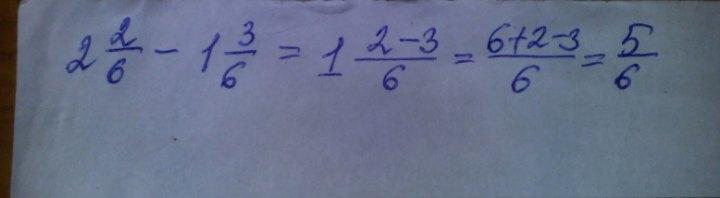 2 2/6 - 1 3/6 = 1 2-3/6 = 6+2-3/6 = 5/6